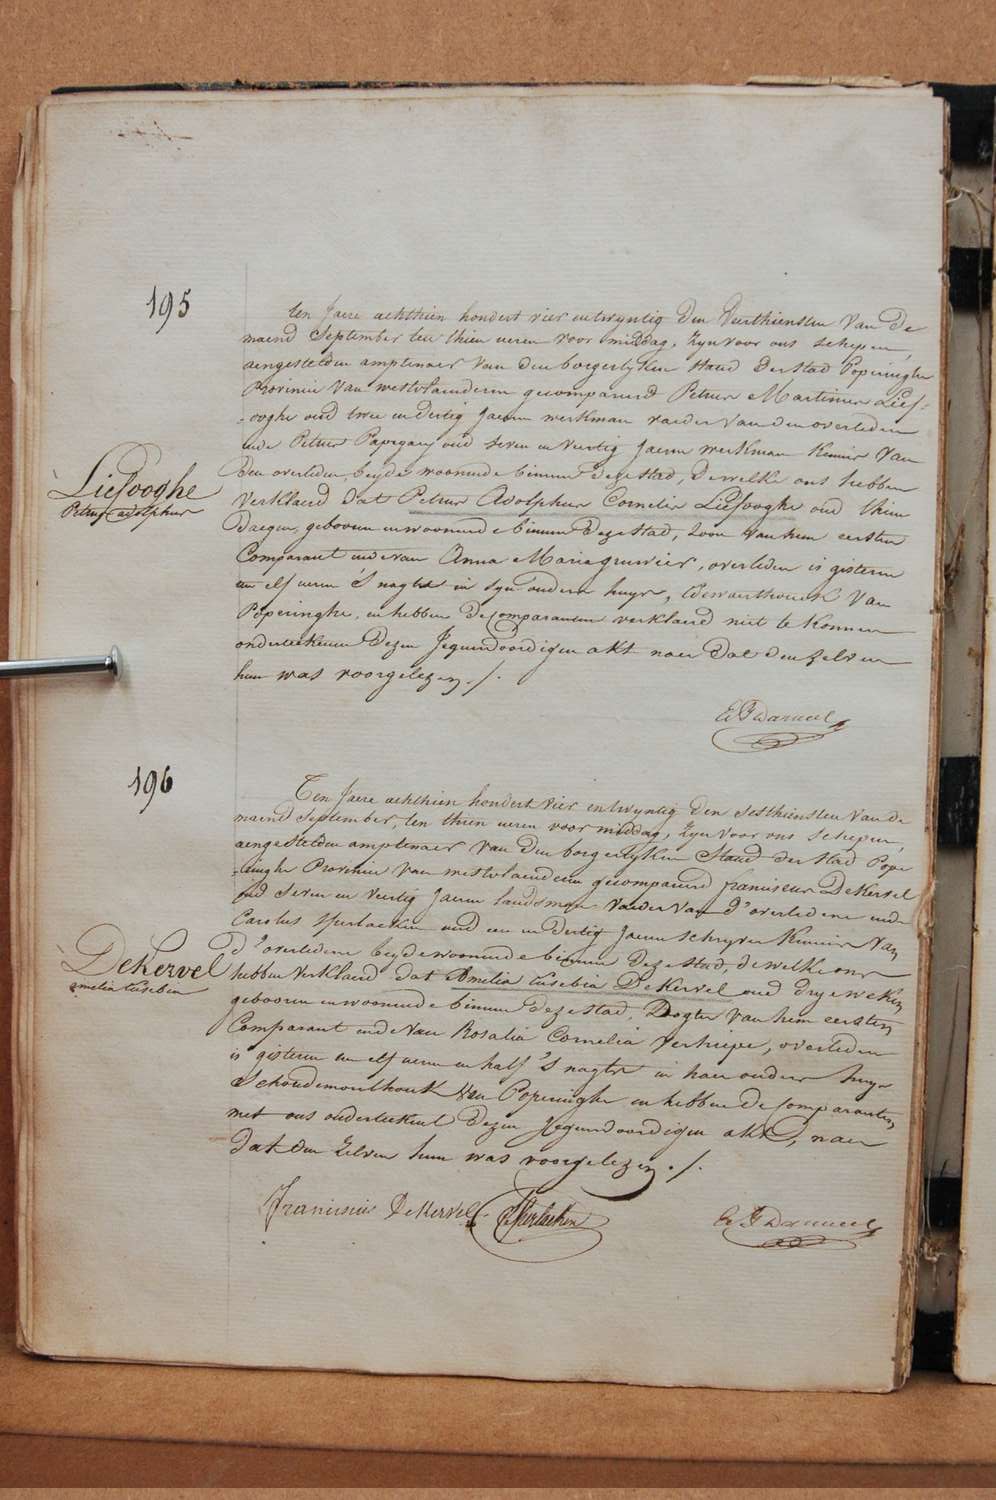 195
ten Jaere achthien hondert vier entwyntig den Veerthiensten Van de
maend September ten thien ueren voor middag, Zyn voor ons schepen,
aengestelden amptenaer Van den borgerlyken stand der stad Poperinghe
Provintie Van westvlaenderen gecompareerd Petrus Martinus Lief-
-ooghe oud twee en dertig Jaeren werkman vaeder Van den overleden
ende Petrus Papegaey oud seven en veertig Jaeren werkman Kennis Van
den overleden, beyde woonende binnen deze stad, dewelke ons hebben
Liefooghe
Petrus adolphus
verklaerd dat Petrus Adolphus Cornelis Liefooghe oud thien
daegen, geboren en woonende binnen deze stad, Zoon Van hem eersten
Comparant ende van Anna Maria gruwier, overleden is gisteren
um elf ueren 's nagts in syn ouders huys, Edewaerthoeck Van
Poperinghe, en hebben de Comparanten verklaerd niet te konnen
onderteekenen dezen Jegenwoordigen akt naer dat den zelven
hun was voorgelezen ./.
196
Ten Jaere achthien hondert vier entwyntig den sesthiensten van de
maend September, ten thien ueren voor middag, Zyn voor ons schepen,
aengestelden amptenaer Van den borgerlyken Stand der stad Pope
-ringhe Provintie Van westvlaenderen gecompareerd franciscus DeKervel
oud seven en veertig Jaeren landsman vaeder Van d'overledene ende
Carolus oud een en dertig Jaeren schryver Kennis Van
DeKervel
amelia Eusebia
d'overledene beyde woonende binnen deze stad, dewelke ons
hebben verklaerd dat Amelia Eusebia DeKervel oud drye weken
geboren en woonende binnen deze stad, Dogter Van hem eersten
Comparant ende Van Rosalia Cornelia Verhiepe, overleden
is gisteren um elf ueren en half 's nagts in haer ouders huys
Schoudemonthoek Van Poperinghe en hebben de Comparanten
met ons onderteekent dezen Jegenwoordigen akt, naer
dat den zelven hun was voorgelezen ./.
Franciscus DeKervel